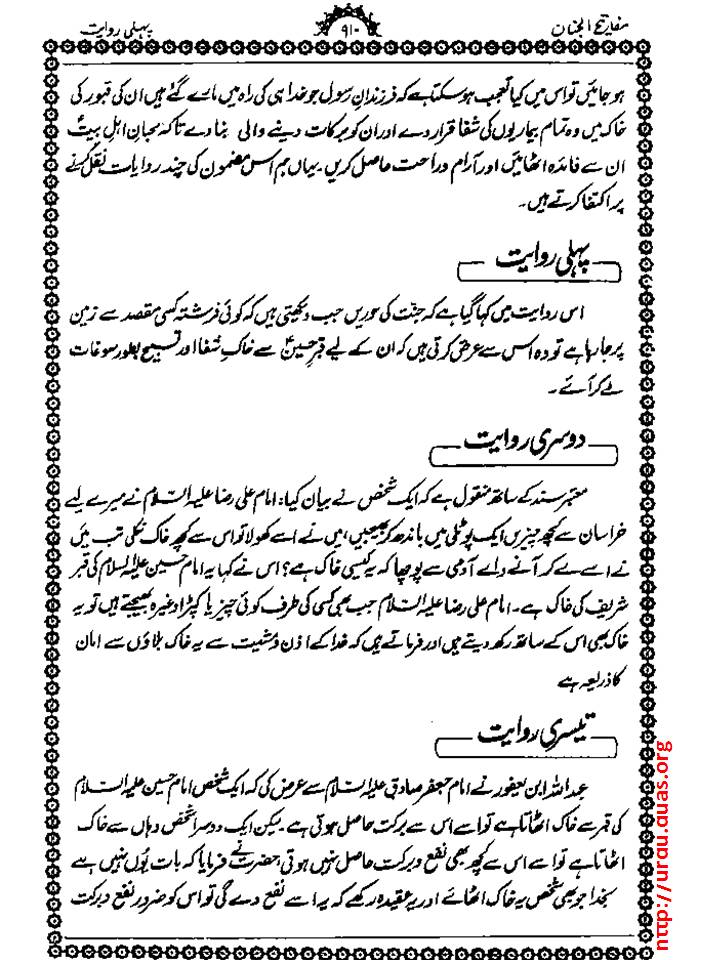 مفاتیح الجنان
۹۱۰
پہلی روایت
ہو جائیں تو اس میں کیا تعجب ہو سکتا ہے کہ فرزندانِ رسول جو خدا ہی کی راہ میں مارے گئے ہیں ان کی قبور کی
خاک میں وہ تمام بیماریوں کی شفا قرار دے اور ان کو برکات دینے والی بنا دے تاکہ محبان اہل بیتؑ
ان سے فائدہ اٹھائیں اور آرام و راحت حاصل کریں۔ یہاں ہم اس مضمون کی چند روایات نقل کرنے
پر اکتفا کرتے ہیں۔
پہلی روایت
اس روایت میں کہا گیا ہے کہ جنّت کی حوریں جب دیکھتی ہیں کہ کوئی فرشتہ کسی مقصد سے زمین
پر جا رہا ہے تو وہ اس سے عرض کرتی ہیں کہ ان کے لیے قبرِ حسینؑ سے خاکِ شفا اور تسبیح بطور سوغات
لے کر آئے۔
دوسری روایت
معتبر سند کے ساتھ منقول ہے کہ ایک شخص نے بیان کیا: امام علی رضا علیہ السّلام نے میرے لیے
خراسان سے کچھ چیزیں ایک پوٹلی میں باندھ کر بھیجیں، میں نے اسے کھولا تو اس سے کچھ خاک نکلی تب میں
نے اسے لے کر آنے والے آدمی سے پوچھا کہ یہ کیسی خاک ہے؟ اس نے کہا یہ امام حسین علیہ السلام کی قبر
شریف کی خاک ہے۔ امام علی رضا علیہ السّلام جب بھی کسی کی طرف کوئی چیز یا کپڑا وغیرہ بھیجتے ہیں تو یہ
خاک بھی اس کے ساتھ رکھ دیتے ہیں اور فرماتے ہیں کہ خدا کے اذن و مشیت سے یہ خاک بلاؤں سے امان
کا ذریعہ ہے
تیسری روایت
عبداللہ ابن یعفور نے امام جعفر صادق علیہ السّلام سے عرض کی کہ ایک شخص امام حسین علیہ السّلام
کی قبر سے خاک اٹھاتا ہے تو اسے اس سے برکت حاصل ہوتی ہے لیکن ایک دوسرا شخص وہاں سے خاک
اٹھاتا ہے تو اسے اس سے کچھ بھی نفع و برکت حاصل نہیں ہوتی، حضرت نے فرمایا کہ بات یُوں نہیں ہے
بخدا جو بھی شخص یہ خاک اٹھائے اور یہ عقیدہ رکھے کہ یہ اسے نفع دے گی تو اس کو ضرور نفع و برکت
http://urdu.duas.org